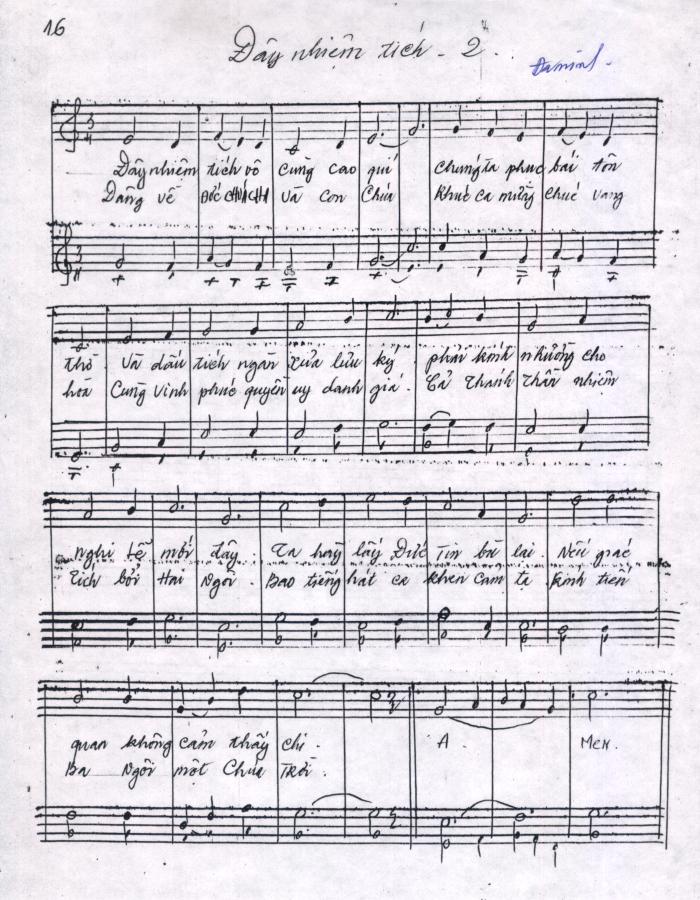 16
Đây nhiệm tích - 2.
Đây nhiệm tích vô cùng cao quí Chúng ta phục bái tôn
Dâng về ĐỨC CHÚA CHA và Con Chúa Khúc ca mừng chúc vang
thờ. Và dấu tích ngàn xưa lưu ký phải kính nhường cho
hoà Cùng vinh phúc quyền uy danh giá. Cả Thánh Thần nhiệm
nghi lễ mới đây. Ta hãy lấy Đức Tin bù lại. Nếu giác
tích bởi Hai Ngôi. Bao tiếng hát ca khen cảm tạ kính tiến
quan không cảm thấy chi. A Men.
Ba Ngôi một Chúa Trời.